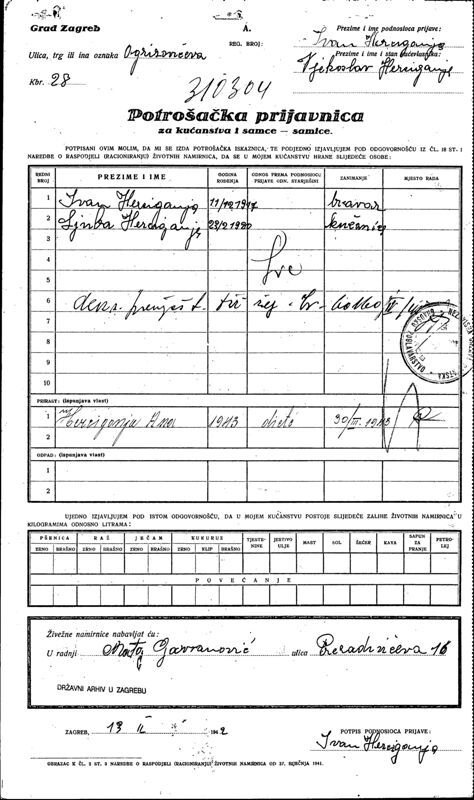 Grad Zagreb
A.
REG. BROJ:
310304
Prezime i ime podnosioca prijave:
Ivan Herciganja
Prezime i ime i stan
Vjekoslav Herciganja
Ulica, trg ili ina oznaka Ogrizovićeva
Kbr. 28
Potrošačka prijavnica
za kućanstva i samce — samice.
POTPISANI OVIM MOLIM, DA MI SE IZDA POTROŠAČKA ISKAZNICA, TE PODJEDNO IZJAVLJUJEM POD ODGOVORNOŠĆU IZ ČL. 18 ST. 1
NAREDBE O RASPODJELI (RACIONIRANJU) ŽIVOTNIH NAMIRNICA, DA SE U MOJEM KUĆANSTVU HRANE SLIJEDEĆE OSOBE:
REDNI BROJ PREZIME I IME GODINA ROĐENJA ODNOS PREMA PODNOSIOCU PRIJAVE ODN. STARJEŠINI ZANIMANJE MJESTO RADA
1 Ivan Herciganja 11/12 1917 bravar
2 Ljuba Herciganja 22/2 1920 kućanica
3
4
5
6
7
8
9
10
PRIRAST: (ispunjava vlast)
1 Herciganja Ana 1943 dijete 30/III. 1943
2
OTPAD: (ispunjava vlast)
1
2
UJEDNO IZJAVLJUJEM POD ISTOM ODGOVORNOŠĆU, DA U MOJEM KUĆANSTVU POSTOJE SLIJEDEĆE ZALIHE ŽIVOTNIH NAMIRNICA U
KILOGRAMIMA ODNOSNO LITRAMA:
PŠENICA RAŽ JEČAM KUKURUZ TJESTENINE JESTIVO ULJE MAST SOL ŠEĆER KAVA SAPUN ZA PRANJE PETROLEJ
ZRNO BRAŠNO ZRNO BRAŠNO ZRNO BRAŠNO ZRNO KLIP BRAŠNO
POVEĆANJE
Živežne namirnice nabavljat ću:
U radnji Matej Gavranović ulica Preradovićeva 16
DRŽAVNI ARHIV U ZAGREBU
ZAGREB, 13 II 1942
POTPIS PODNOSIOCA PRIJAVE:
Ivan Herciganja
OBRAZAC K ČL. 2 ST. 3 NAREDBE O RASPODJELI (RACIONIRANJU) ŽIVOTNIH NAMIRNICA OD 27. SIJEČNJA 1941.